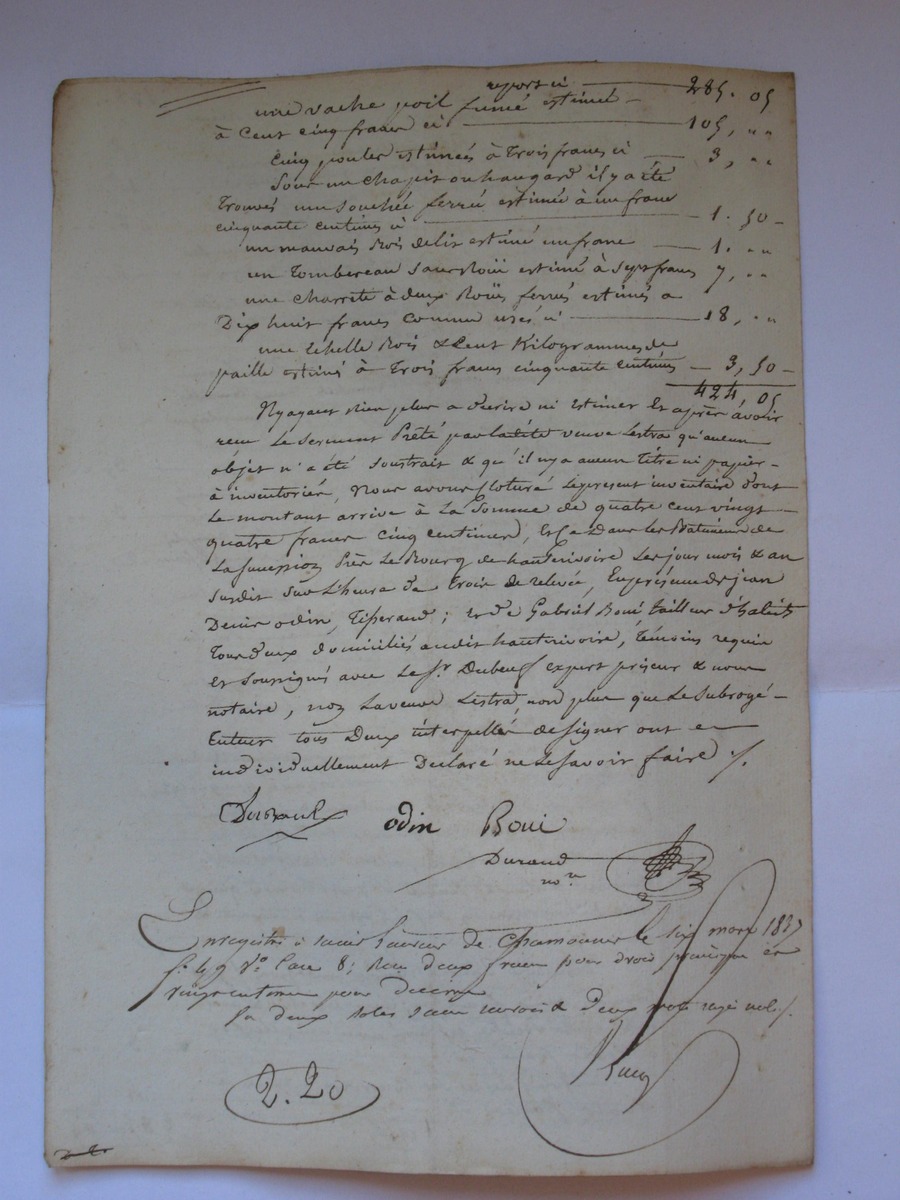 report ci 285. 05
une vache poil fumé estimée
à Cent cinq francs ci 105, " "
cinq poules estimées à trois francs ci 3, " "
sous un chapit ou hangard il y a été
trouvés une souchée ferrée estimée à un franc
cinquante centimes ci 1. 50
un mauvais bois de lit estimé un franc 1. " "
un tombereau sans Roüe estimé à sept francs 7, " "
une charrete à deux Roües ferrés estimés a
Dix huit francs comme usés ci 18, " "
une Echelle Bois & Cent Kilogrammes de
paille estimé à trois francs cinquante centimes 3, 50
424, 05
N'y ayant rien plus a décrire ni estimer Et après avoir
recu Le serment Prêté par ladite veuve Lestra qu'aucun
objet n'a été soustrait & qu'il n'y a aucun Titre ni papier
à inventorier, Nous avons Cloturé Le present inventaire dont
Le montant arrive à La Somme de quatre cent vingt
quatre francs cinq centimes, Et Ce Dans les Batimens de
La succession Près Le Bourg de hauterivoire Les jour mois & an
susdit sur L'heure de trois de relevée, En présence de jean
Denis odin, Tisserand; et de Gabriel Boui tailleur d'habits
tous deux domiciliés audit hauterivoire, témoins requis
et soussignés avec Le Sr. Dubeuf expert priseur & nous
notaire, non La veuve Lestra, non plus que Le subrogé
tuteur tous Deux interpellés de signer ont
individuellement Declaré ne Le savoir faire ./.
odin Boui
Durand
nore
Enregistré à saint Laurent de Chamousset le six mars 1837
fo. 49 Vo. Case 8; Recu deux francs pour droit principal et
vingt centimes pour decime
2. 20